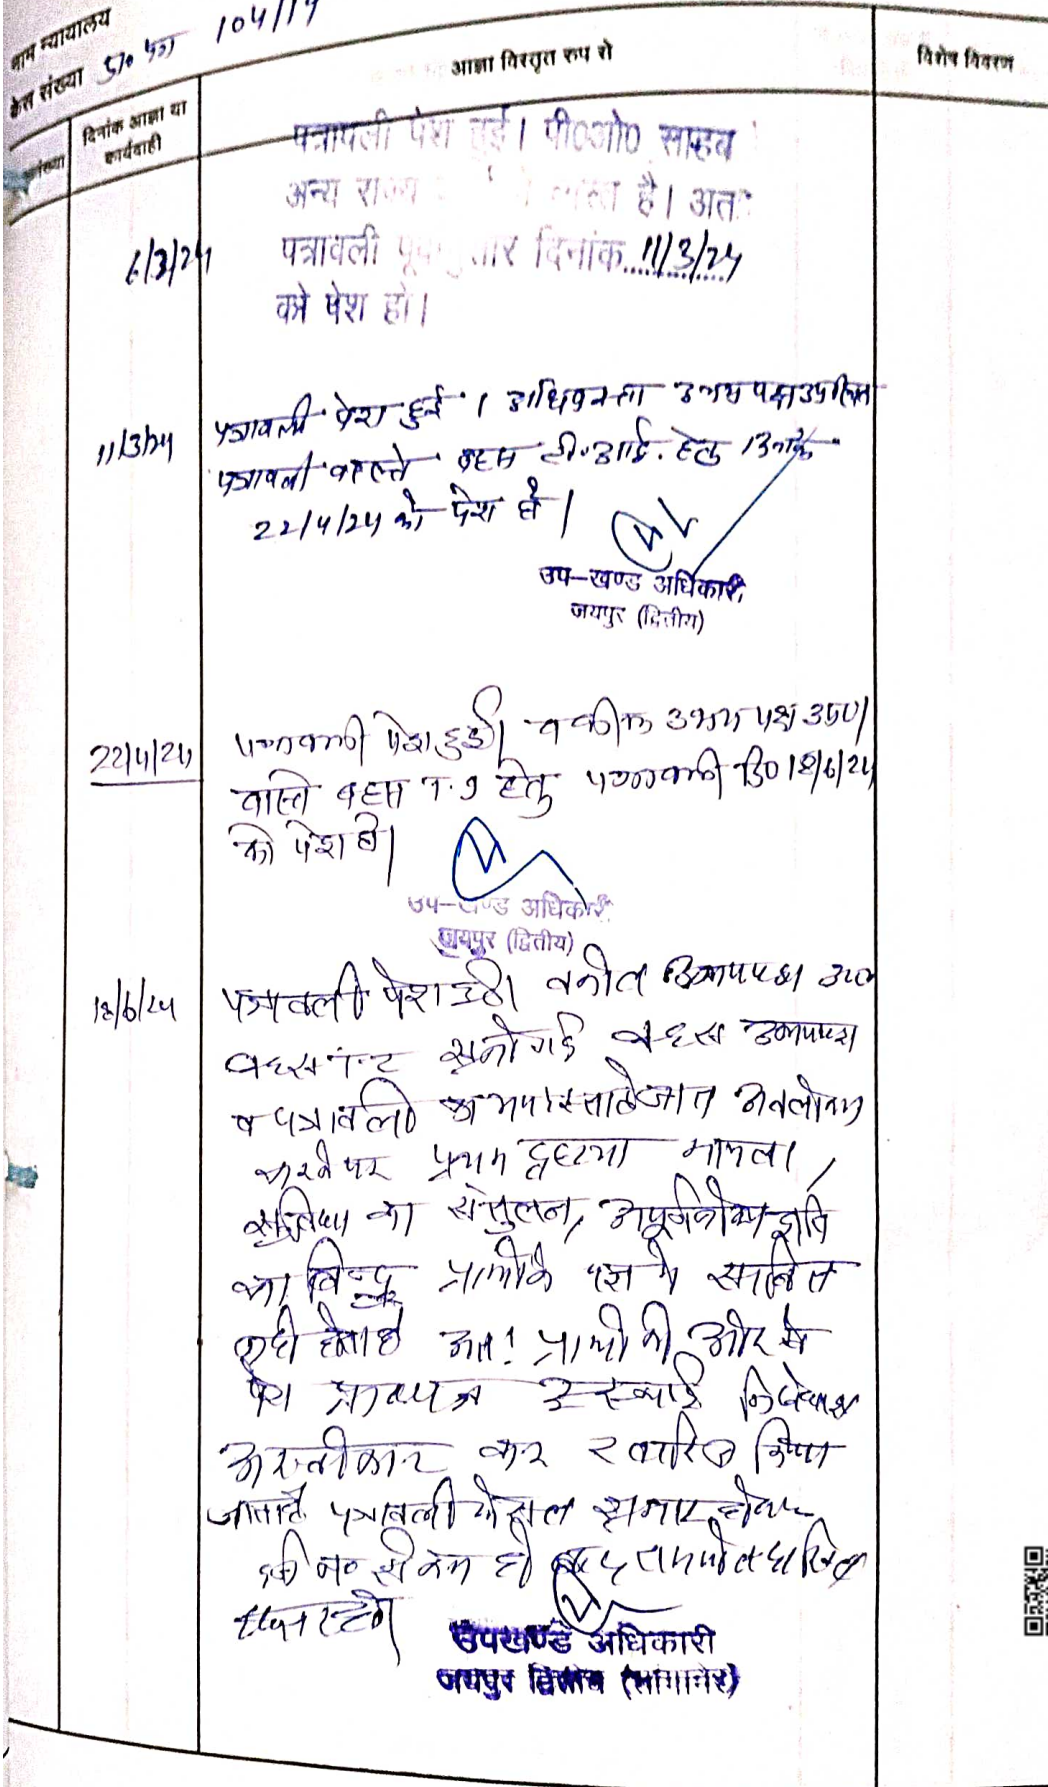 नाम न्यायालय
केस संख्या 104/19
संख्या
दिनांक आज्ञा या
कार्यवाही
आज्ञा विस्तृत रुप से
विशेष विवरण
पत्रावली पेश हुई। पी०ओ० साहब
अन्य राज्य है। अतः
6/3/24
पत्रावली दिनांक 11/3/24
को पेश हो।
11/3/24
पत्रावली पेश हुई। अधिवक्ता उभय पक्ष उपस्थित
पत्रावली वास्ते बहस टी.आई. हेतु दिनांक
22/4/24 को पेश हो।
उप-खण्ड अधिकारी,
जयपुर (द्वितीय)
22/4/24
पत्रावली पेश हुई। वकील उभय पक्ष उप०।
वास्ते बहस हेतु पत्रावली दि० 18/6/24
को पेश हो।
उप-खण्ड अधिकारी
जयपुर (द्वितीय)
18/6/24
पत्रावली पेश हुई। वकील उभयपक्ष उप०
बहस सुनी गई बहस उभयपक्ष
व पत्रावली दस्तावेजात अवलोकन
करने पर प्रथम दृष्टया मामला,
सुविधा का संतुलन, अपूर्णनीय क्षति
का बिन्दु प्रार्थी के पक्ष मे साबित
नही होता है अतः प्रार्थी की ओर से
पेश प्रा०पत्र अस्थाई निषेधाज्ञा
अस्वीकार कर खारिज किया
जाता है पत्रावली फैसल शुमार होकर
नं० से कम हो दाखिल
दफ्तर हो।
उपखण्ड अधिकारी
जयपुर द्वितीय (सांगानेर)